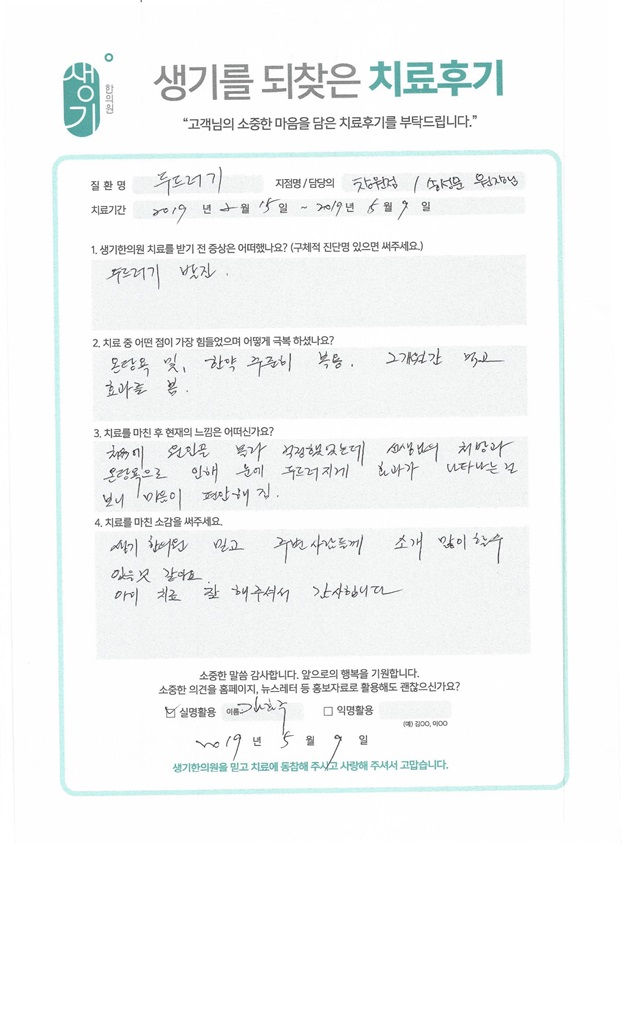 생기
한의원
생기를 되찾은 치료후기
“고객님의 소중한 마음을 담은 치료후기를 부탁드립니다.”
질 환 명 두드러기 지점명 / 담당의 창원점 / 원장님
치료기간 2019 년 2 월 15 일 ~ 2019 년 5 월 9 일
1. 생기한의원 치료를 받기 전 증상은 어떠했나요? (구체적 진단명 있으면 써주세요.)
두드러기 발진.
2. 치료 중 어떤 점이 가장 힘들었으며 어떻게 극복 하셨나요?
온탕욕 및, 한약 꾸준히 복용. 2개월간 먹고
효과를 봄.
3. 치료를 마친 후 현재의 느낌은 어떠신가요?
처음에 원인을 몰라 걱정했었는데 선생님의 처방과
온탕욕으로 인해 눈에 두드러지게 효과가 나타나는걸
보니 마음이 편안해 짐.
4. 치료를 마친 소감을 써주세요.
생기 한의원 믿고 주변사람들께 소개 많이 할수
있을 것 같아요.
아이 치료 잘 해주셔서 감사합니다
소중한 말씀 감사합니다. 앞으로의 행복을 기원합니다.
소중한 의견을 홈페이지, 뉴스레터 등 홍보자료로 활용해도 괜찮으신가요?
☑ 실명활용 이름: □ 익명활용
(예) 김OO, 이OO
2019 년 5 월 9 일
생기한의원을 믿고 치료에 동참해 주시고 사랑해 주셔서 고맙습니다.